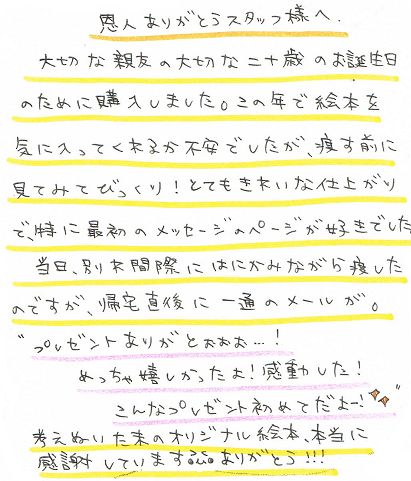 恩人ありがとうスタッフ様へ.
大切な親友の大切な二十歳のお誕生日
のために購入しました。この年で絵本を
気に入ってくれるか不安でしたが、渡す前に
見てみてびっくり！とてもきれいな仕上がり
で、特に最初のメッセージのページが好きでした
当日、別れ間際にはにかみながら渡した
のですが、帰宅直後に一通のメールが。
"プレゼントありがとおおお…！
めっちゃ嬉しかったよ！感動した！
こんなプレゼント初めてだよー！"
考えぬいた末のオリジナル絵本、本当に
感謝しています。。。ありがとう!!!